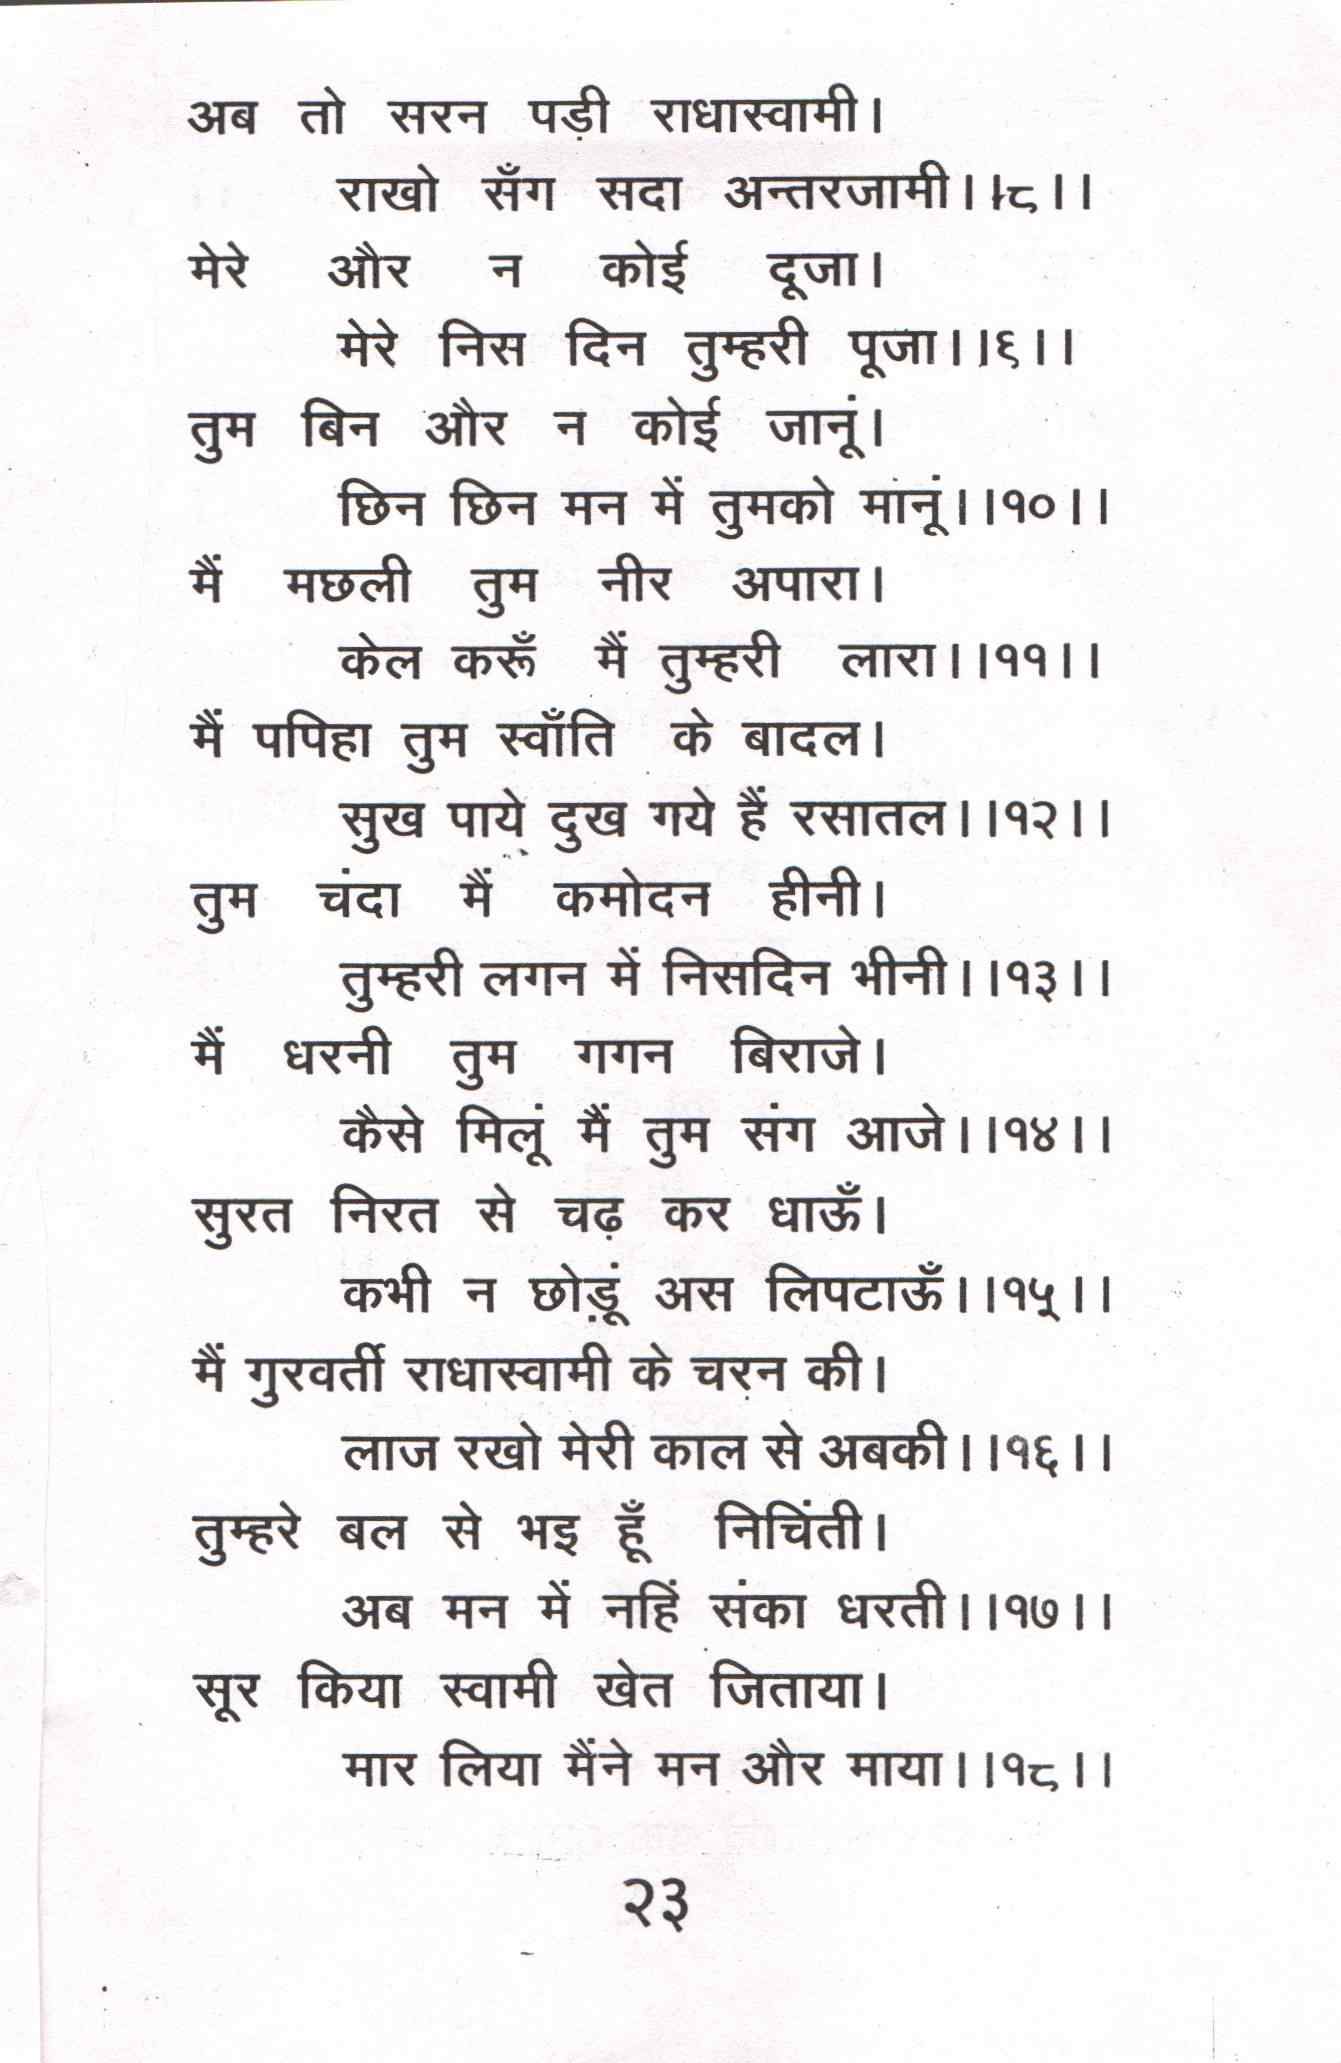 अब तो सरन पड़ी राधास्वामी।
राखो सँग सदा अन्तरजामी।।८।।
मेरे और न कोई दूजा।
मेरे निस दिन तुम्हरी पूजा।।९।।
तुम बिन और न कोई जानूं।
छिन छिन मन में तुमको मानूं।।१०।।
मैं मछली तुम नीर अपारा।
केल करूँ मैं तुम्हरी लारा।।११।।
मैं पपिहा तुम स्वाँति के बादल।
सुख पाये दुख गये हैं रसातल।।१२।।
तुम चंदा मैं कमोदन हीनी।
तुम्हरी लगन में निसदिन भीनी।।१३।।
मैं धरनी तुम गगन बिराजे।
कैसे मिलूं मैं तुम संग आजे।।१४।।
सुरत निरत से चढ़ कर धाऊँ।
कभी न छोड़ूं अस लिपटाऊँ।।१५।।
मैं गुरवर्ती राधास्वामी के चरन की।
लाज रखो मेरी काल से अबकी।।१६।।
तुम्हरे बल से भइ हूँ निचिंती।
अब मन में नहिं संका धरती।।१७।।
सूर किया स्वामी खेत जिताया।
मार लिया मैंने मन और माया।।१८।।
२३